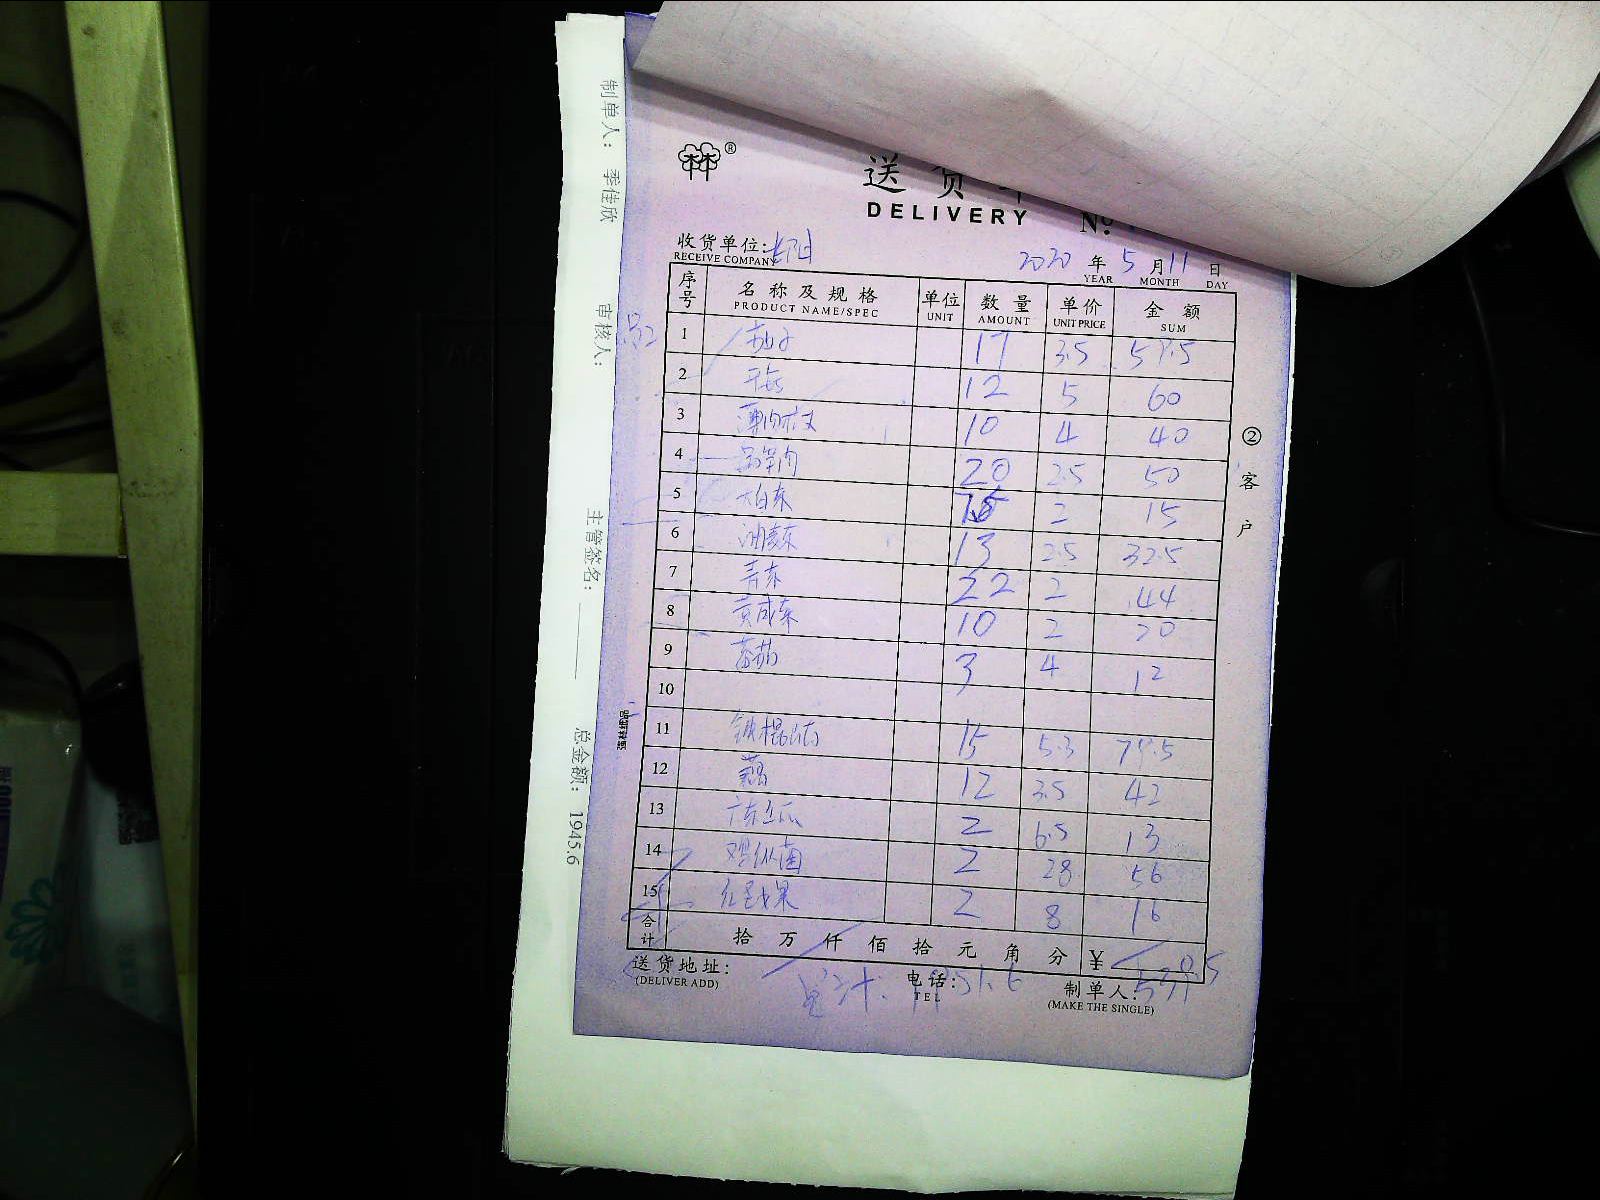 送货
DELIVERY
No.
收货单位:
RECEIVE COMPANY
2020 年 5 月 11 日
YEAR MONTH DAY
序号 名称及规格 单位 数量 单价 金额
PRODUCT NAME/SPEC UNIT AMOUNT UNIT PRICE SUM
1 茄子 17 3.5 59.5
2 12 5 60
3 10 4 40
4 20 2.5 50
5 大白菜 7.5 2 15
6 油麦菜 13 2.5 32.5
7 青菜 22 2 44
8 10 2 20
9 蕃茄 3 4 12
10
11 铁棍山药 15 5.3 79.5
12 藕 12 3.5 42
13 2 6.5 13
14 鸡枞菌 2 28 56
15 2 8 16
合计 拾 万 仟 佰 拾 元 角 分 ¥ 539.5
送货地址:
(DELIVER ADD)
电话:
TEL
制单人:
(MAKE THE SINGLE)
② 客户
强林纸品
制单人: 季佳欣
审核人:
主管签名:
总金额: 1945.6